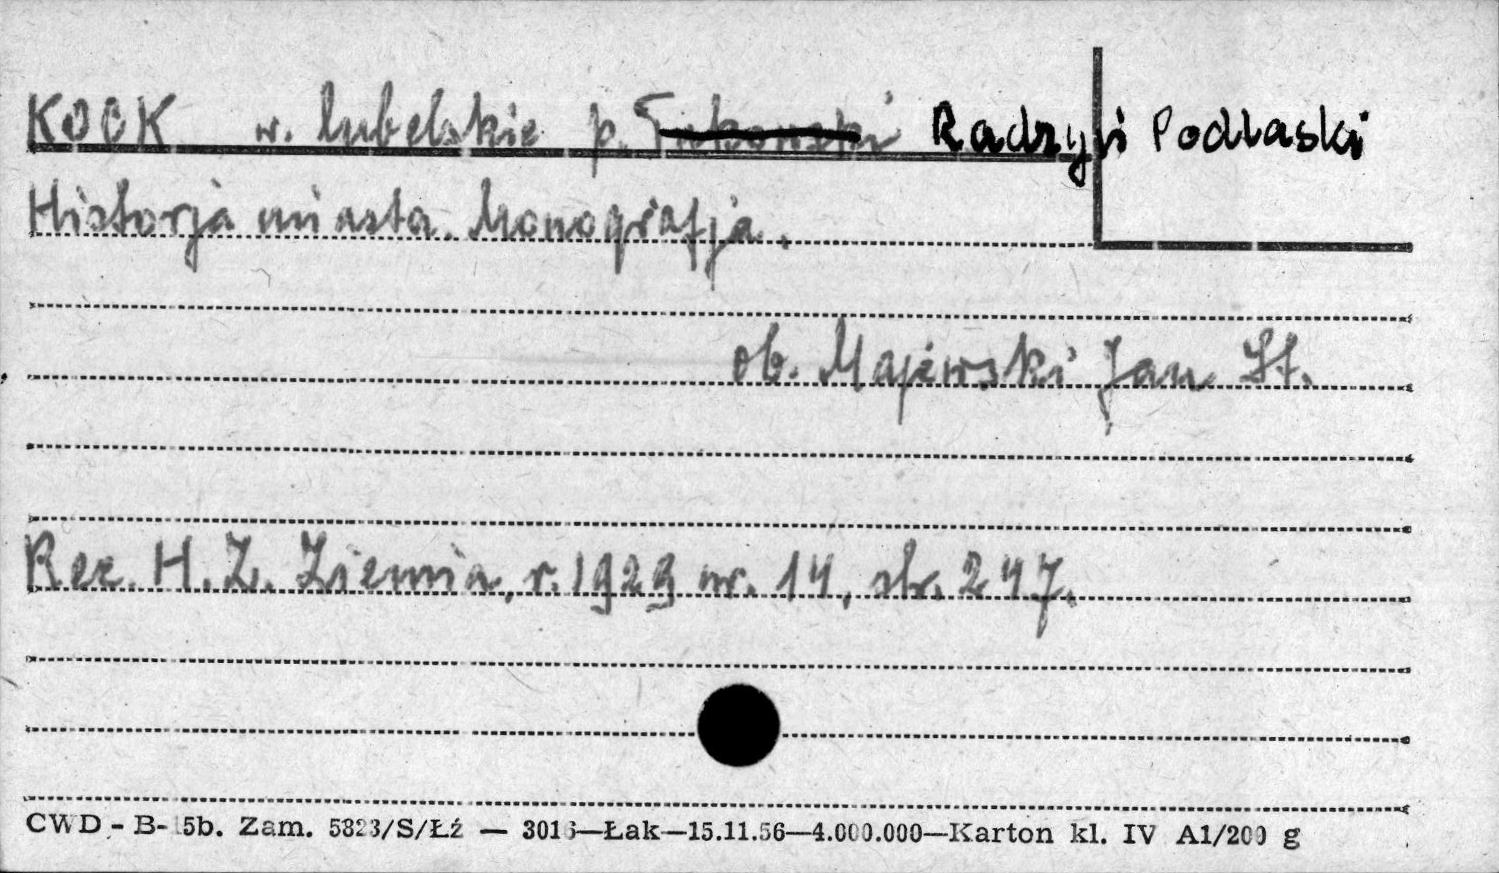 KOCK w. lubelskie p. Łukowski Radzyń Podlaski
Historja miasta. Monografja.
ob. Majewski Jan St.
Rec. H. Z. Ziemia, r. 1929 nr. 14, str. 247.
CWD - B-15b. Zam. 5823/S/Łź — 3016—Łak—15.11.56—4.000.000—Karton kl. IV A1/200 g